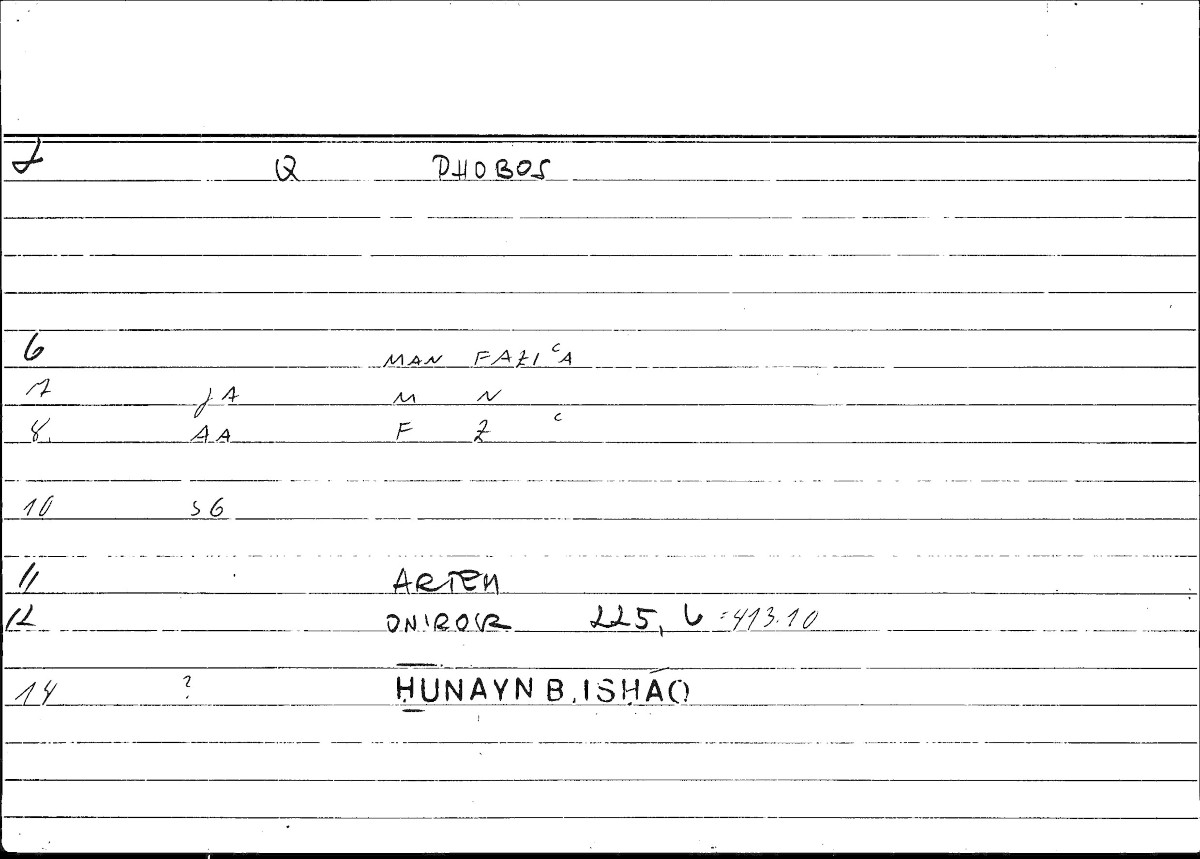 1 Q PHOBOS
6 MAN FAZIʿA
7 JA M N
8. AA F Z ʿ
10 SG
11 ARTEM
12 ONIROCR 225, 6 = 413.10
14 ? ḤUNAYN B. ISḤĀQ